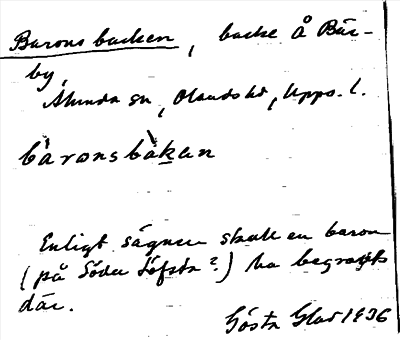 Baronsbacken, backe å Bär-
by,
Alunda sn, Olands hd, Upps. l.
bàronsbàkan
Enligt sägnen skall en baron
(på Söder Löfsta?) ha begravts
där.
Gösta Glad 1936